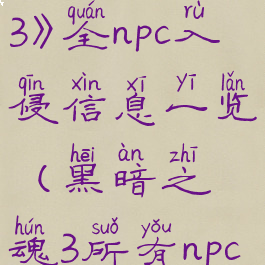 quán rù
3》全npc入
qīn xìn xī yī lǎn
侵信息一览
hēi àn zhī
(黑暗之
hún suǒ yǒu
魂3所有npc